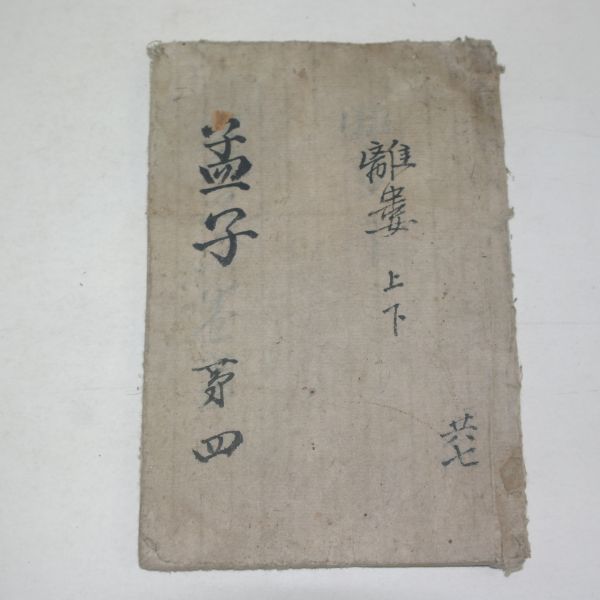 孟子 第四
離婁 上下
共七